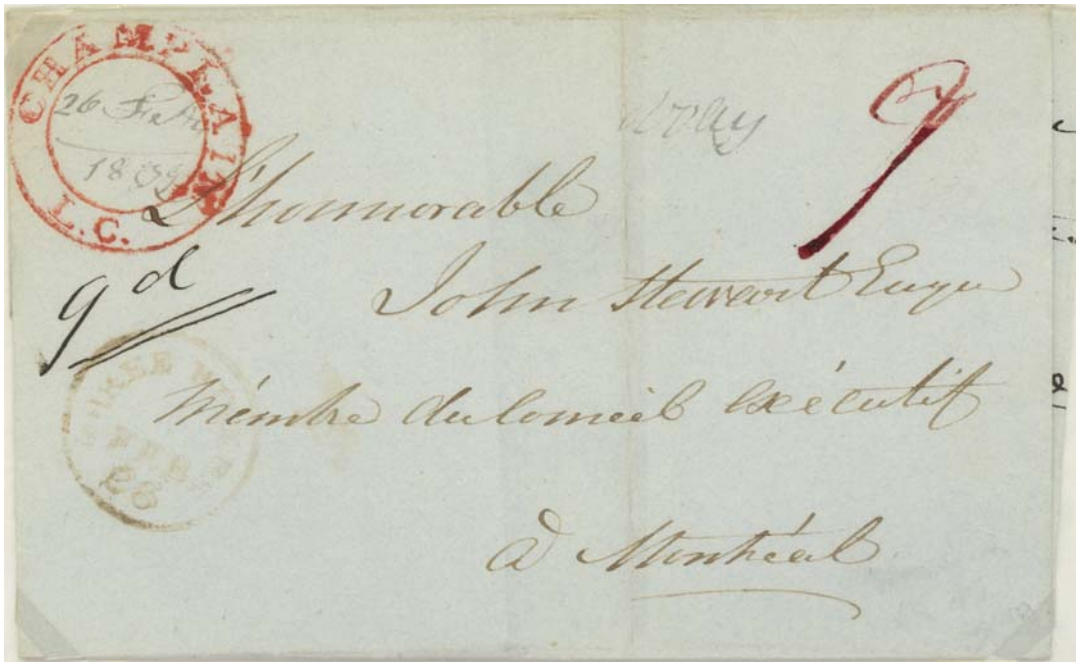 CHAMPLAIN
L.C.
26 Feb
1839
9
L'honnorable
9d
John Stewart
THREE RIVERS
FEB
28
Membre du Conseil exécutif
à Montréal